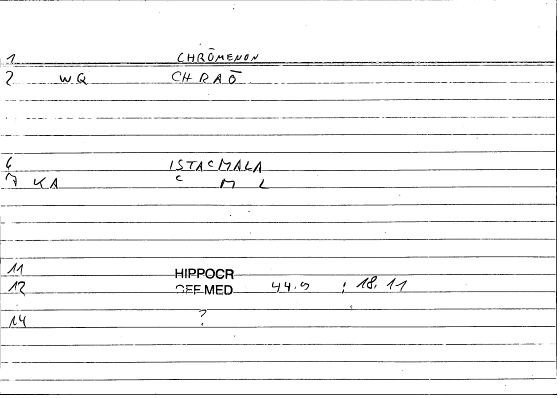 1 CHRŌMENON
2 WQ CHRAŌ
6 ISTACMALA
7 KA C M L
11 HIPPOCR
12 OFF.MED 44.9 : 18.11
14 ?